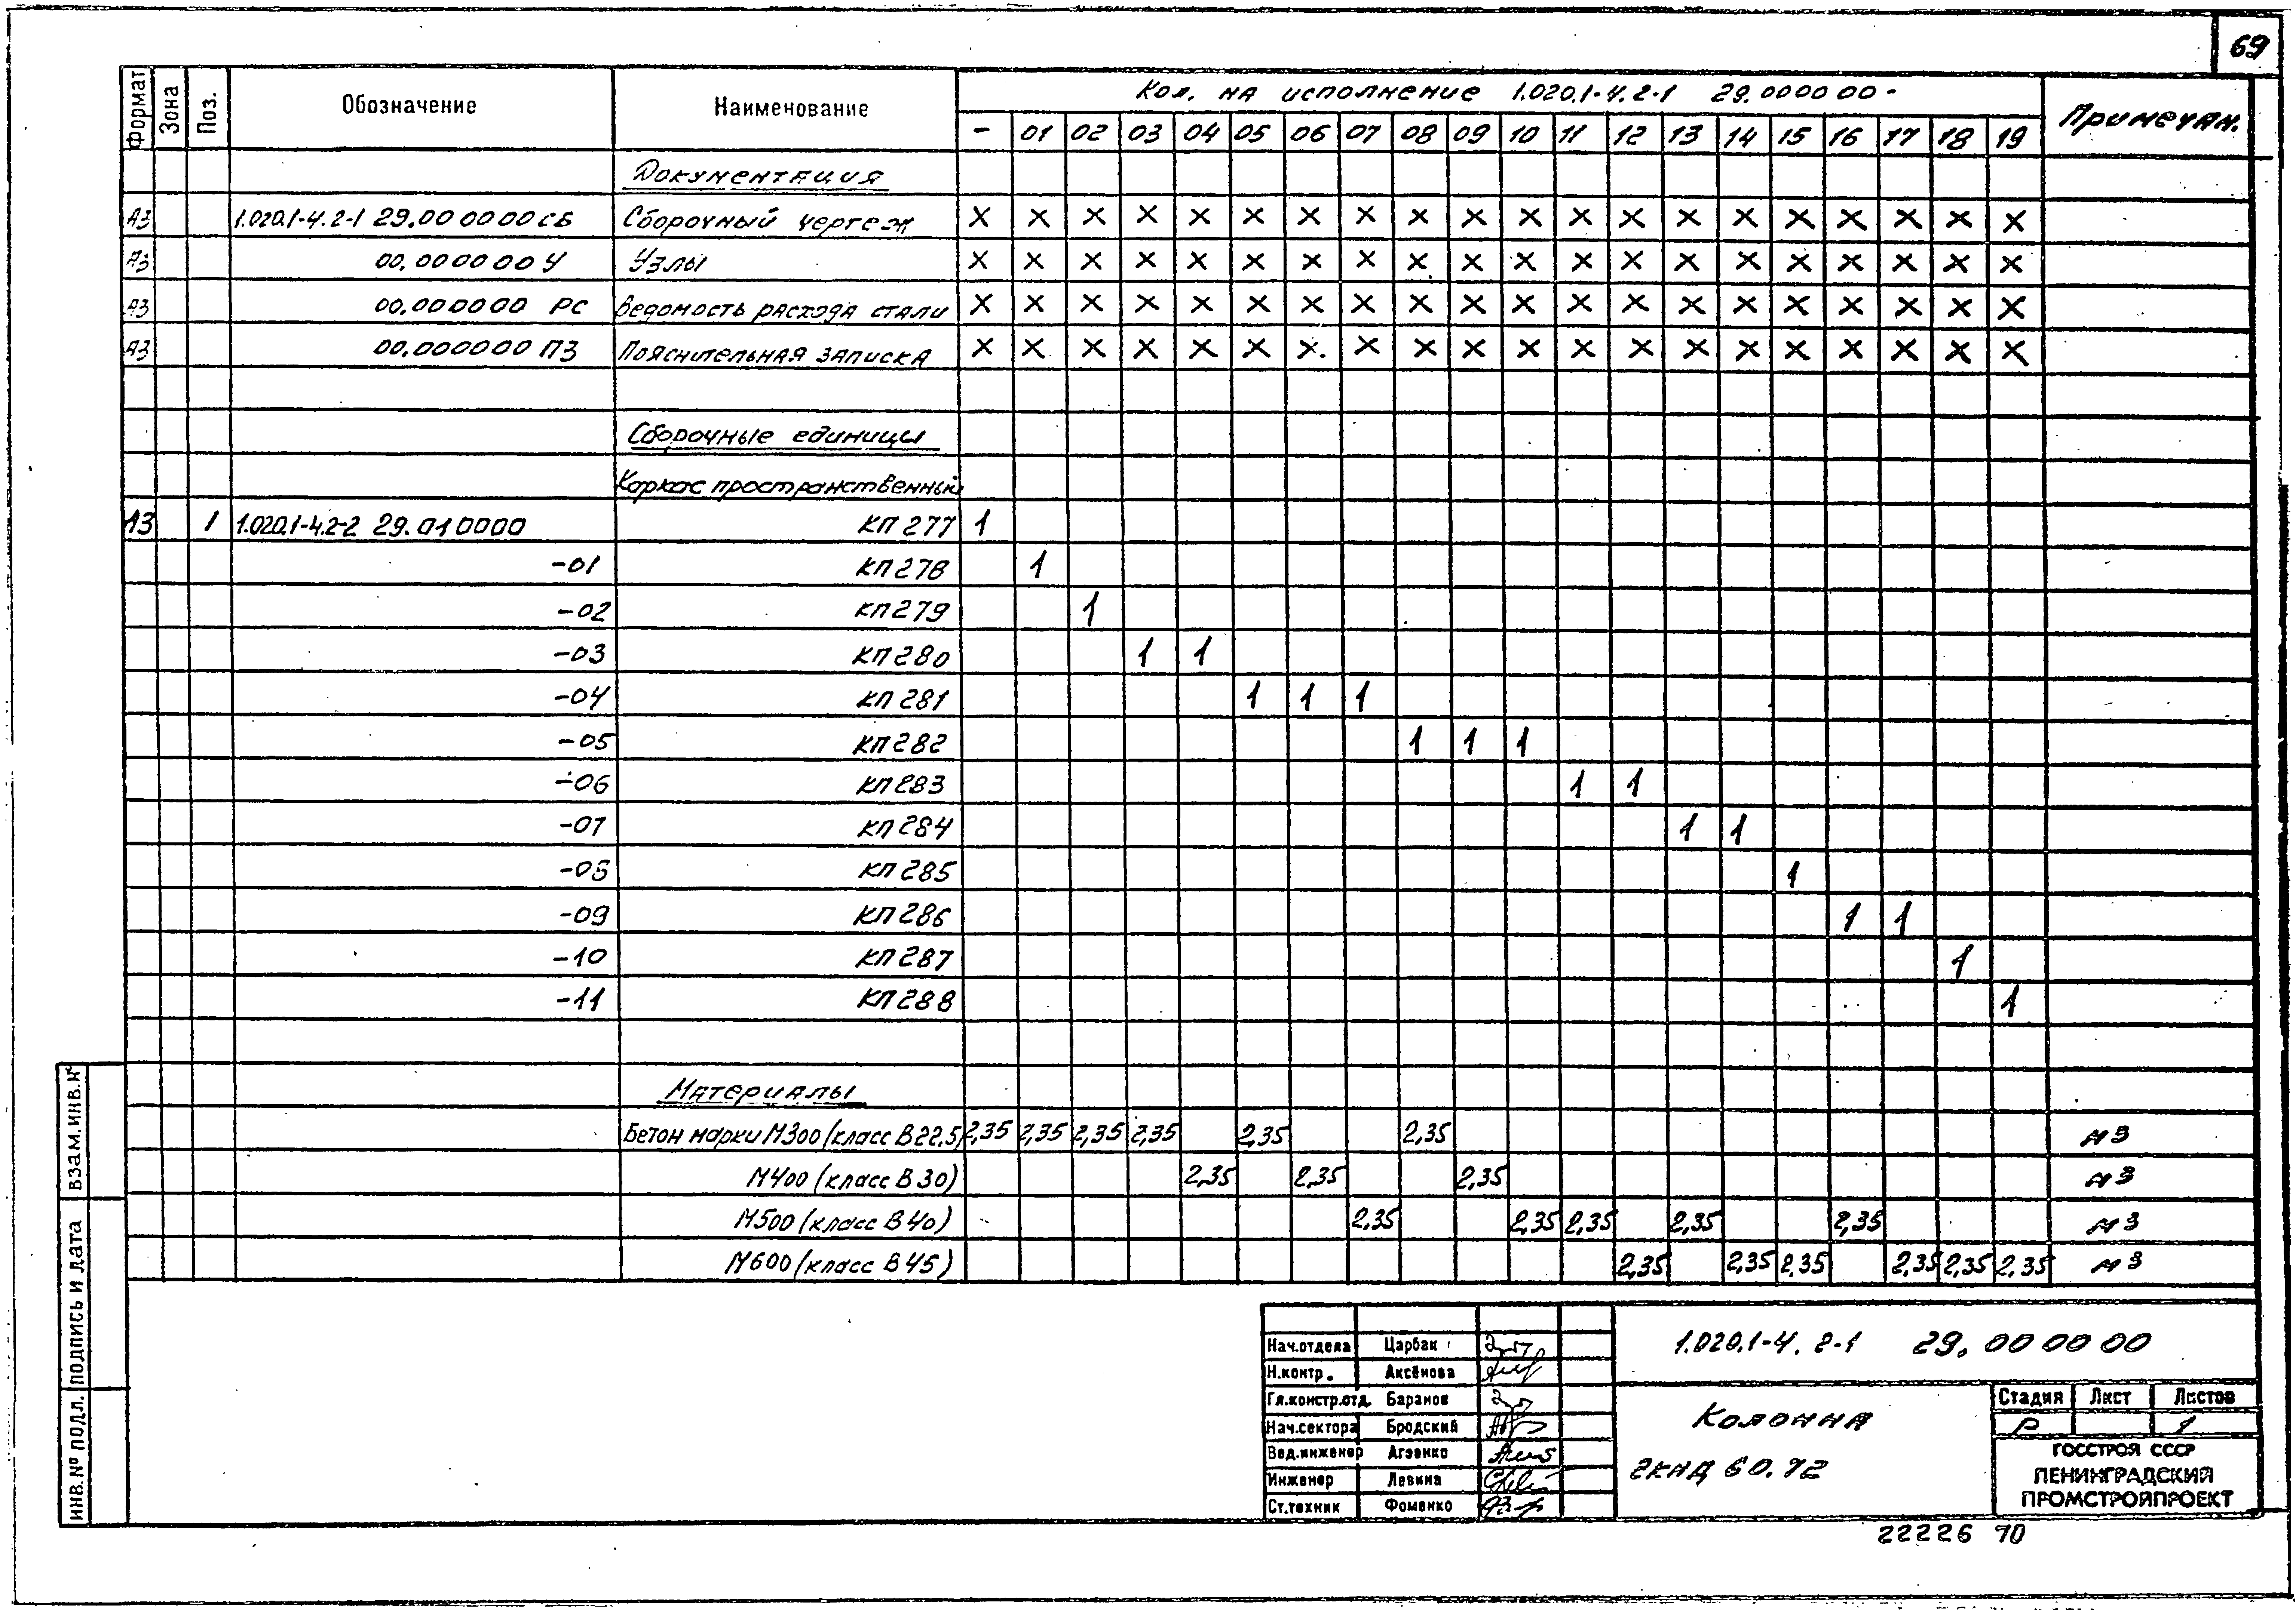 69
Формат Зона Поз. Обозначение Наименование Кол. на исполнение 1.020.1-4.2-1 29.000000- Примечан.
- 01 02 03 04 05 06 07 08 09 10 11 12 13 14 15 16 17 18 19
Документация
А3 1.020.1-4.2-1 29.000000СБ Сборочный чертеж X X X X X X X X X X X X X X X X X X X X
А3 00.000000У Узлы X X X X X X X X X X X X X X X X X X X X
А3 00.000000 РС Ведомость расхода стали X X X X X X X X X X X X X X X X X X X X
А3 00.000000 ПЗ Пояснительная записка X X X X X X X X X X X X X X X X X X X X
Сборочные единицы
Каркас пространственный
А3 1 1.020.1-4.2-2 29.010000 КП 277 1
-01 КП 278 1
-02 КП 279 1
-03 КП 280 1 1
-04 КП 281 1 1 1
-05 КП 282 1 1 1
-06 КП 283 1 1
-07 КП 284 1 1
-08 КП 285 1
-09 КП 286 1 1
-10 КП 287 1
-11 КП 288 1
Материалы
Бетон марки М300 (класс В22,5) 2,35 2,35 2,35 2,35 2,35 2,35 м3
М400 (класс В30) 2,35 2,35 2,35 м3
М500 (класс В40) 2,35 2,35 2,35 2,35 2,35 м3
М600 (класс В45) 2,35 2,35 2,35 2,35 2,35 2,35 м3
ИНВ.№ ПОДЛ. ПОДПИСЬ И ДАТА ВЗАМ.ИНВ.№
Нач.отдела Царбак
Н.контр. Аксёнова
Гл.констр.отд. Баранов
Нач.сектора Бродский
Вед.инженер Агеенко
Инженер Левина
Ст.техник Фоменко
1.020.1-4.2-1 29.000000
Колонна
2КНД 60.72
Стадия Лист Листов
Р 1
ГОССТРОЙ СССР
ЛЕНИНГРАДСКИЙ
ПРОМСТРОЙПРОЕКТ
22226 70